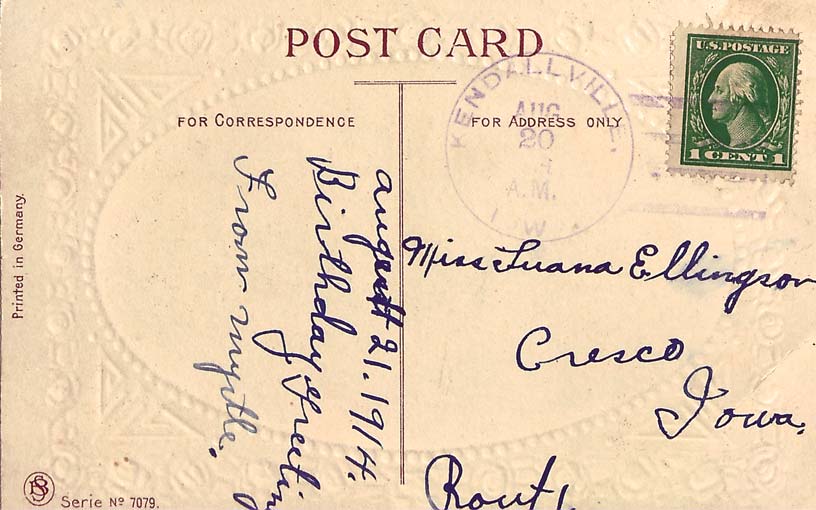 POST CARD
FOR CORRESPONDENCE
FOR ADDRESS ONLY
KENDALLVILLE,
AUG
20
A.M.
U.S. POSTAGE
1 CENT 1
august 21. 1914.
Birthday Greetin
From myrtle.
Miss Luana Ellingson
Cresco
Iowa.
Rout 1
Printed in Germany.
BS
Serie No 7079.